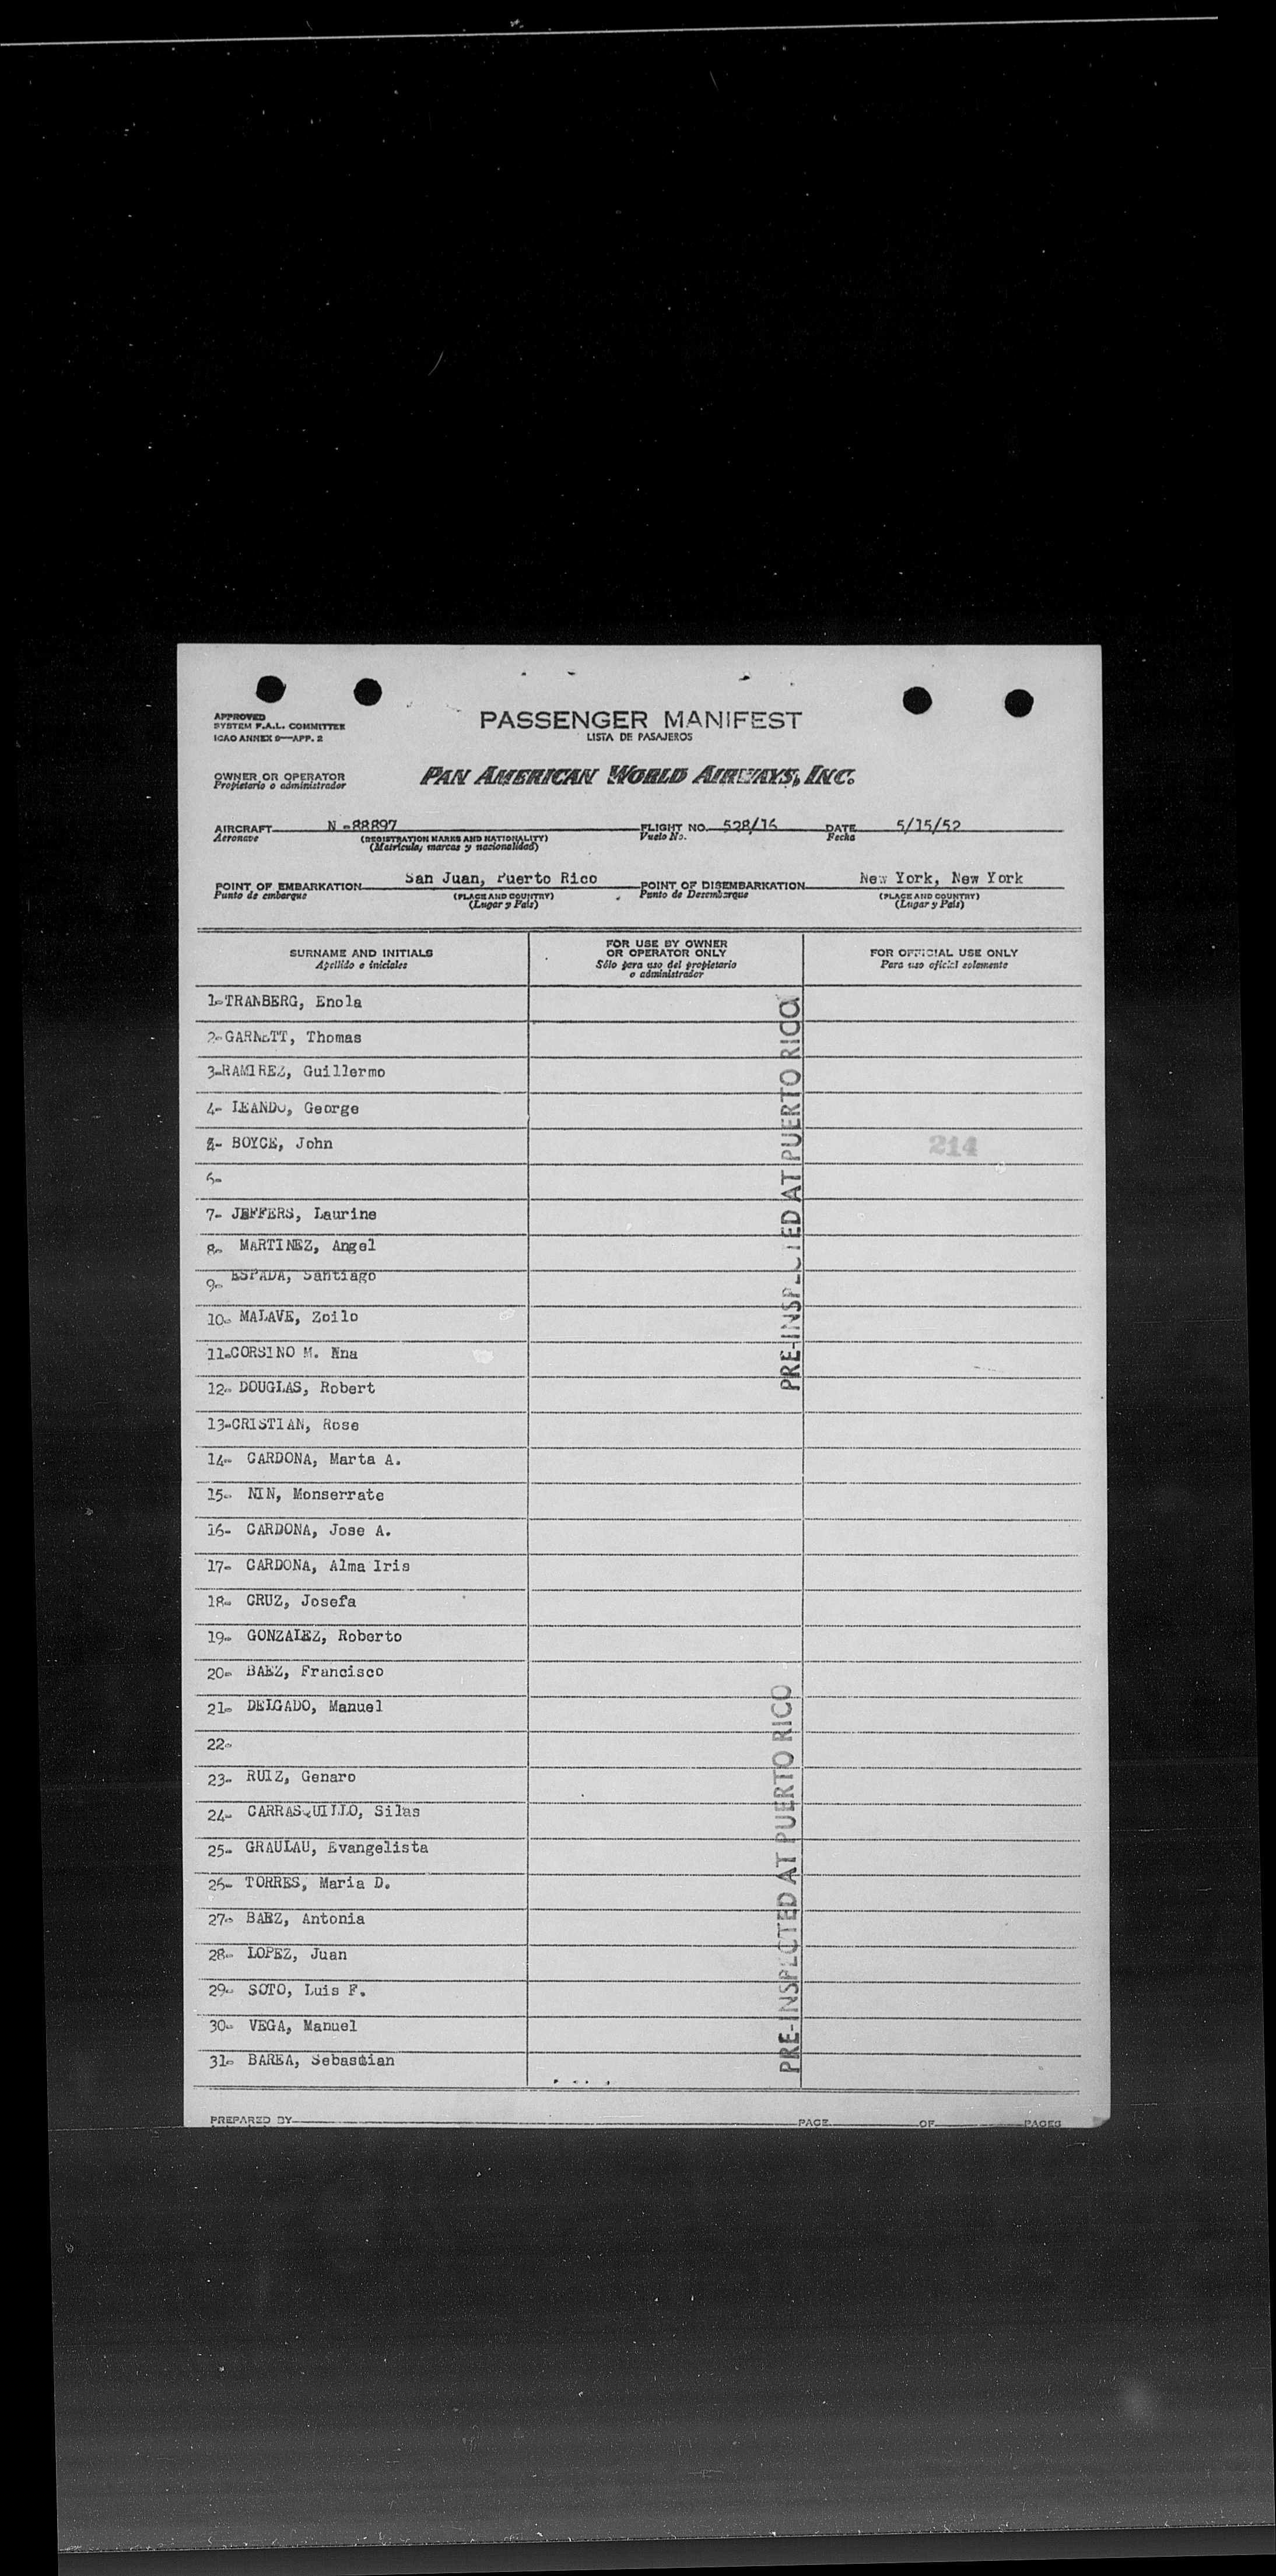 APPROVED
SYSTEM F.A.L. COMMITTEE
ICAO ANNEX 9—APP. 2
PASSENGER MANIFEST
LISTA DE PASAJEROS
OWNER OR OPERATOR
Propietario o administrador
PAN AMERICAN WORLD AIRWAYS, INC.
AIRCRAFT N-88897 FLIGHT NO. 528/16 DATE 5/15/52
Aeronave (REGISTRATION MARKS AND NATIONALITY) Vuelo No. Fecha
(Matrícula, marcas y nacionalidad)
POINT OF EMBARKATION San Juan, Puerto Rico POINT OF DISEMBARKATION New York, New York
Punto de embarque (PLACE AND COUNTRY) Punto de Desembarque (PLACE AND COUNTRY)
(Lugar y País) (Lugar y País)
SURNAME AND INITIALS
Apellido e iniciales
FOR USE BY OWNER
OR OPERATOR ONLY
Sólo para uso del propietario
o administrador
FOR OFFICIAL USE ONLY
Para uso oficial solamente
1-TRANBERG, Enola
2-GARNETT, Thomas
3-RAMIREZ, Guillermo
4- LEANDO, George
BOYCE, John
214
6-
7- JEFFERS, Laurine
8- MARTINEZ, Angel
9- ESPADA, Santiago
10- MALAVE, Zoilo
11-CORSINO M. Ana
12- DOUGLAS, Robert
13-CRISTIAN, Rose
14- CARDONA, Marta A.
15- NIN, Monserrate
16- CARDONA, Jose A.
17- CARDONA, Alma Iris
18- CRUZ, Josefa
19- GONZALEZ, Roberto
20- BAEZ, Francisco
21- DELGADO, Manuel
22-
23- RUIZ, Genaro
24- CARRASQUILLO, Silas
25- GRAULAU, Evangelista
26- TORRES, Maria D.
27- BAEZ, Antonia
28- LOPEZ, Juan
29- SOTO, Luis F.
30- VEGA, Manuel
31- BAREA, Sebastian
PRE-INSPECTED AT PUERTO RICO
PRE-INSPECTED AT PUERTO RICO
PREPARED BY PAGE OF PAGES